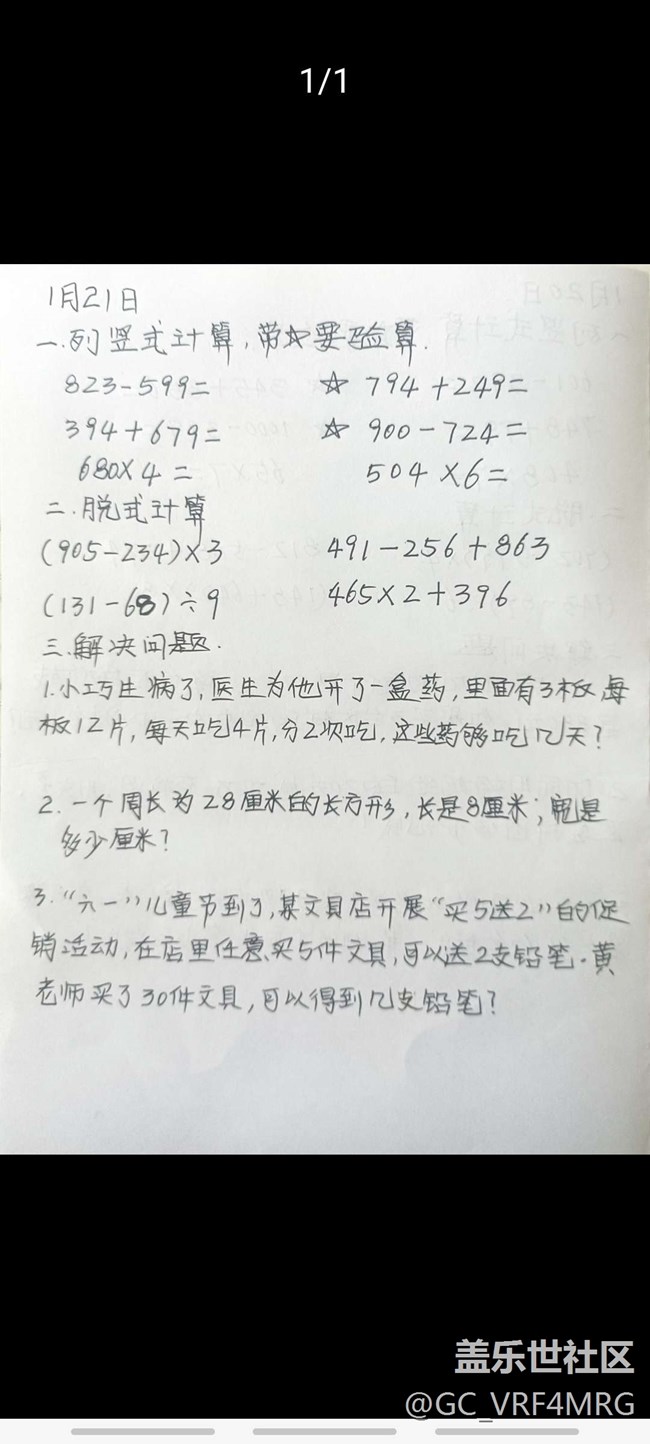 1/1
1月21日
一.列竖式计算,带☆要验算.
823-599=
☆ 794+249=
394+679=
☆ 900-724=
680×4=
504×6=
二.脱式计算
(905-234)×3
491-256+863
(131-68)÷9
465×2+396
三.解决问题.
1.小巧生病了,医生为他开了一盒药,里面有3板,每
板12片,每天吃4片,分2次吃,这些药够吃几天?
2.一个周长为28厘米的长方形,长是8厘米;宽是
多少厘米?
3."六一"儿童节到了,某文具店开展"买5送2"的促
销活动,在店里任意买5件文具,可以送2支铅笔.黄
老师买了30件文具,可以得到几支铅笔?
盖乐世社区
@GC_VRF4MRG